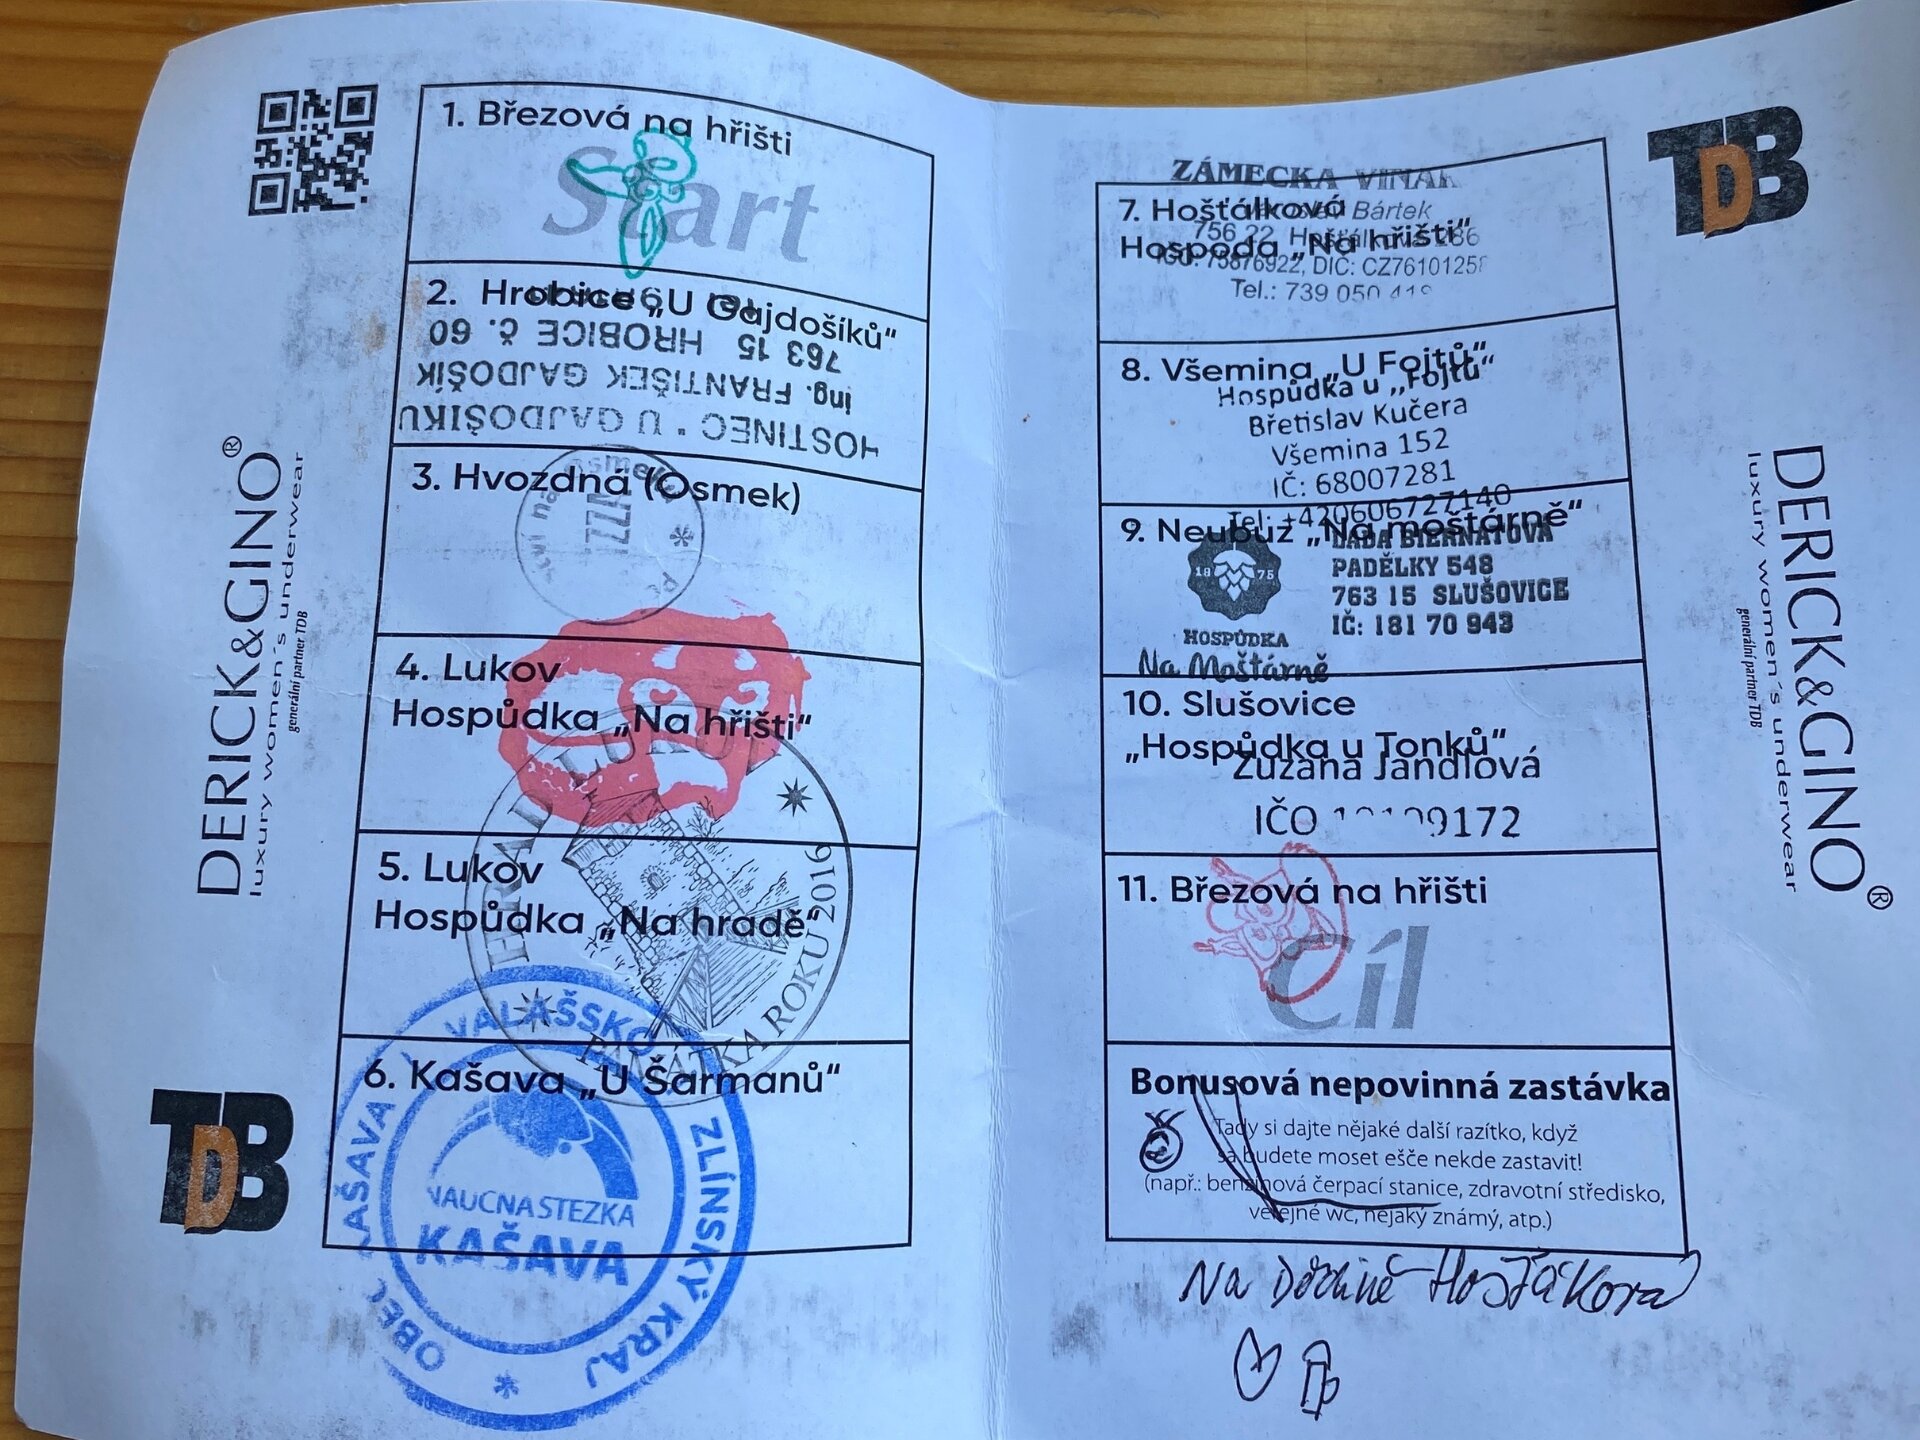 1. Březová na hřišti
Start
2. Hrobice „U Gajdošíků“
HOSTINEC • U GAJDOŠIKU
ing. FRANTIŠEK GAJDOŠÍK
763 15 HROBICE č. 60
3. Hvozdná (Osmek)
PIZZA
4. Lukov
Hospůdka „Na hřišti“
5. Lukov
Hospůdka „Na hradě“
HRAD LUKOV
PAMÁTKA ROKU 2016
6. Kašava „U Šarmanů“
VALAŠSKO
ZLÍNSKÝ KRAJ
OBEC KAŠAVA
NAUČNA STEZKA
KAŠAVA
DERICK&GINO®
luxury women´s underwear
generální partner TDB
TDB
7. Hošťálková
Hospoda „Na hřišti“
ZÁMECKA
Bártek
756 22
75876922, DIČ:
Tel.: 739 050
8. Všemina „U Fojtů“
Hospůdka u „Fojtů“
Břetislav Kučera
Všemina 152
IČ: 68007281
Tel: +420606727140
9. Neubuz „Na moštárně“
BIERNATOVÁ
PADĚLKY 548
763 15 SLUŠOVICE
IČ: 181 70 943
1875
HOSPŮDKA
Na Moštárně
10. Slušovice
„Hospůdka u Tonků“
Zuzana Jandlová
IČO
11. Březová na hřišti
Cíl
Bonusová nepovinná zastávka
Tady si dajte nějaké další razítko, když
sa budete moset ešče nekde zastavit!
(např.: benzinová čerpací stanice, zdravotní středisko,
veřejné wc, nějaký známý, atp.)
Na Dědině
TDB
DERICK&GINO®
luxury women´s underwear
generální partner TDB